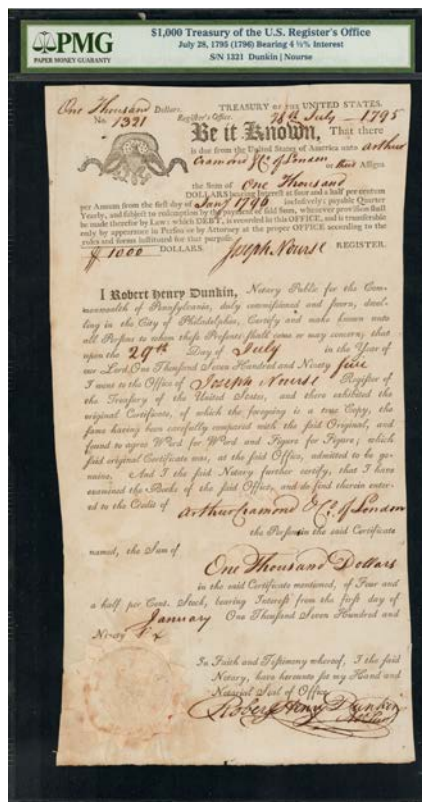 PMG
PAPER MONEY GUARANTY
$1,000 Treasury of the U.S. Register's Office
July 28, 1795 (1796) Bearing 4 ½% Interest
S/N 1321 Dunkin | Nourse
One Thousand Dollars.
No. 1321
TREASURY OF THE UNITED STATES.
Register's Office. 28th July 1795
Be it Known, That there
is due from the United States of America unto Arthur
Cramond & Co. of London
or their Assigns
the Sum of One Thousand
DOLLARS bearing Interest at four and a half per centum
per Annum from the first day of Jany 1796 inclusively; payable Quarter
Yearly, and subject to redemption by the payment of said Sum, whenever provision shall
be made therefor by Law; which DEBT, is recorded in this OFFICE, and is transferable
only by appearance in Person or by Attorney at the proper OFFICE according to the
rules and forms instituted for that purpose.
$ 1000 DOLLARS. Joseph Nourse REGISTER.
I Robert Henry Dunkin, Notary Public for the Com-
monwealth of Pennsylvania, duly commissioned and sworn, dwel-
ling in the City of Philadelphia, Certify and make known unto
all Persons to whom these Presents shall come or may concern; that
upon the 29th Day of July in the Year of
our Lord, One Thousand Seven Hundred and Ninety five
I went to the Office of Joseph Nourse Register of
the Treasury of the United States, and there exhibited the
original Certificate, of which the foregoing is a true Copy, the
same having been carefully compared with the said Original, and
found to agree Word for Word and Figure for Figure; which
said original Certificate was, at the said Office, admitted to be ge-
nuine. And I the said Notary further certify, that I have
examined the Books of the said Office, and do find therein enter-
ed to the Credit of Arthur Cramond & Co. of London
the Person in the said Certificate
named, the Sum of
One Thousand Dollars
in the said Certificate mentioned, of Four and
a half per Cent. Stock, bearing Interest from the first day of
January One Thousand Seven Hundred and
Ninety
In Faith and Testimony whereof, I the said
Notary, have hereunto set my Hand and
Notarial Seal of Office
Robert Henry Dunkin